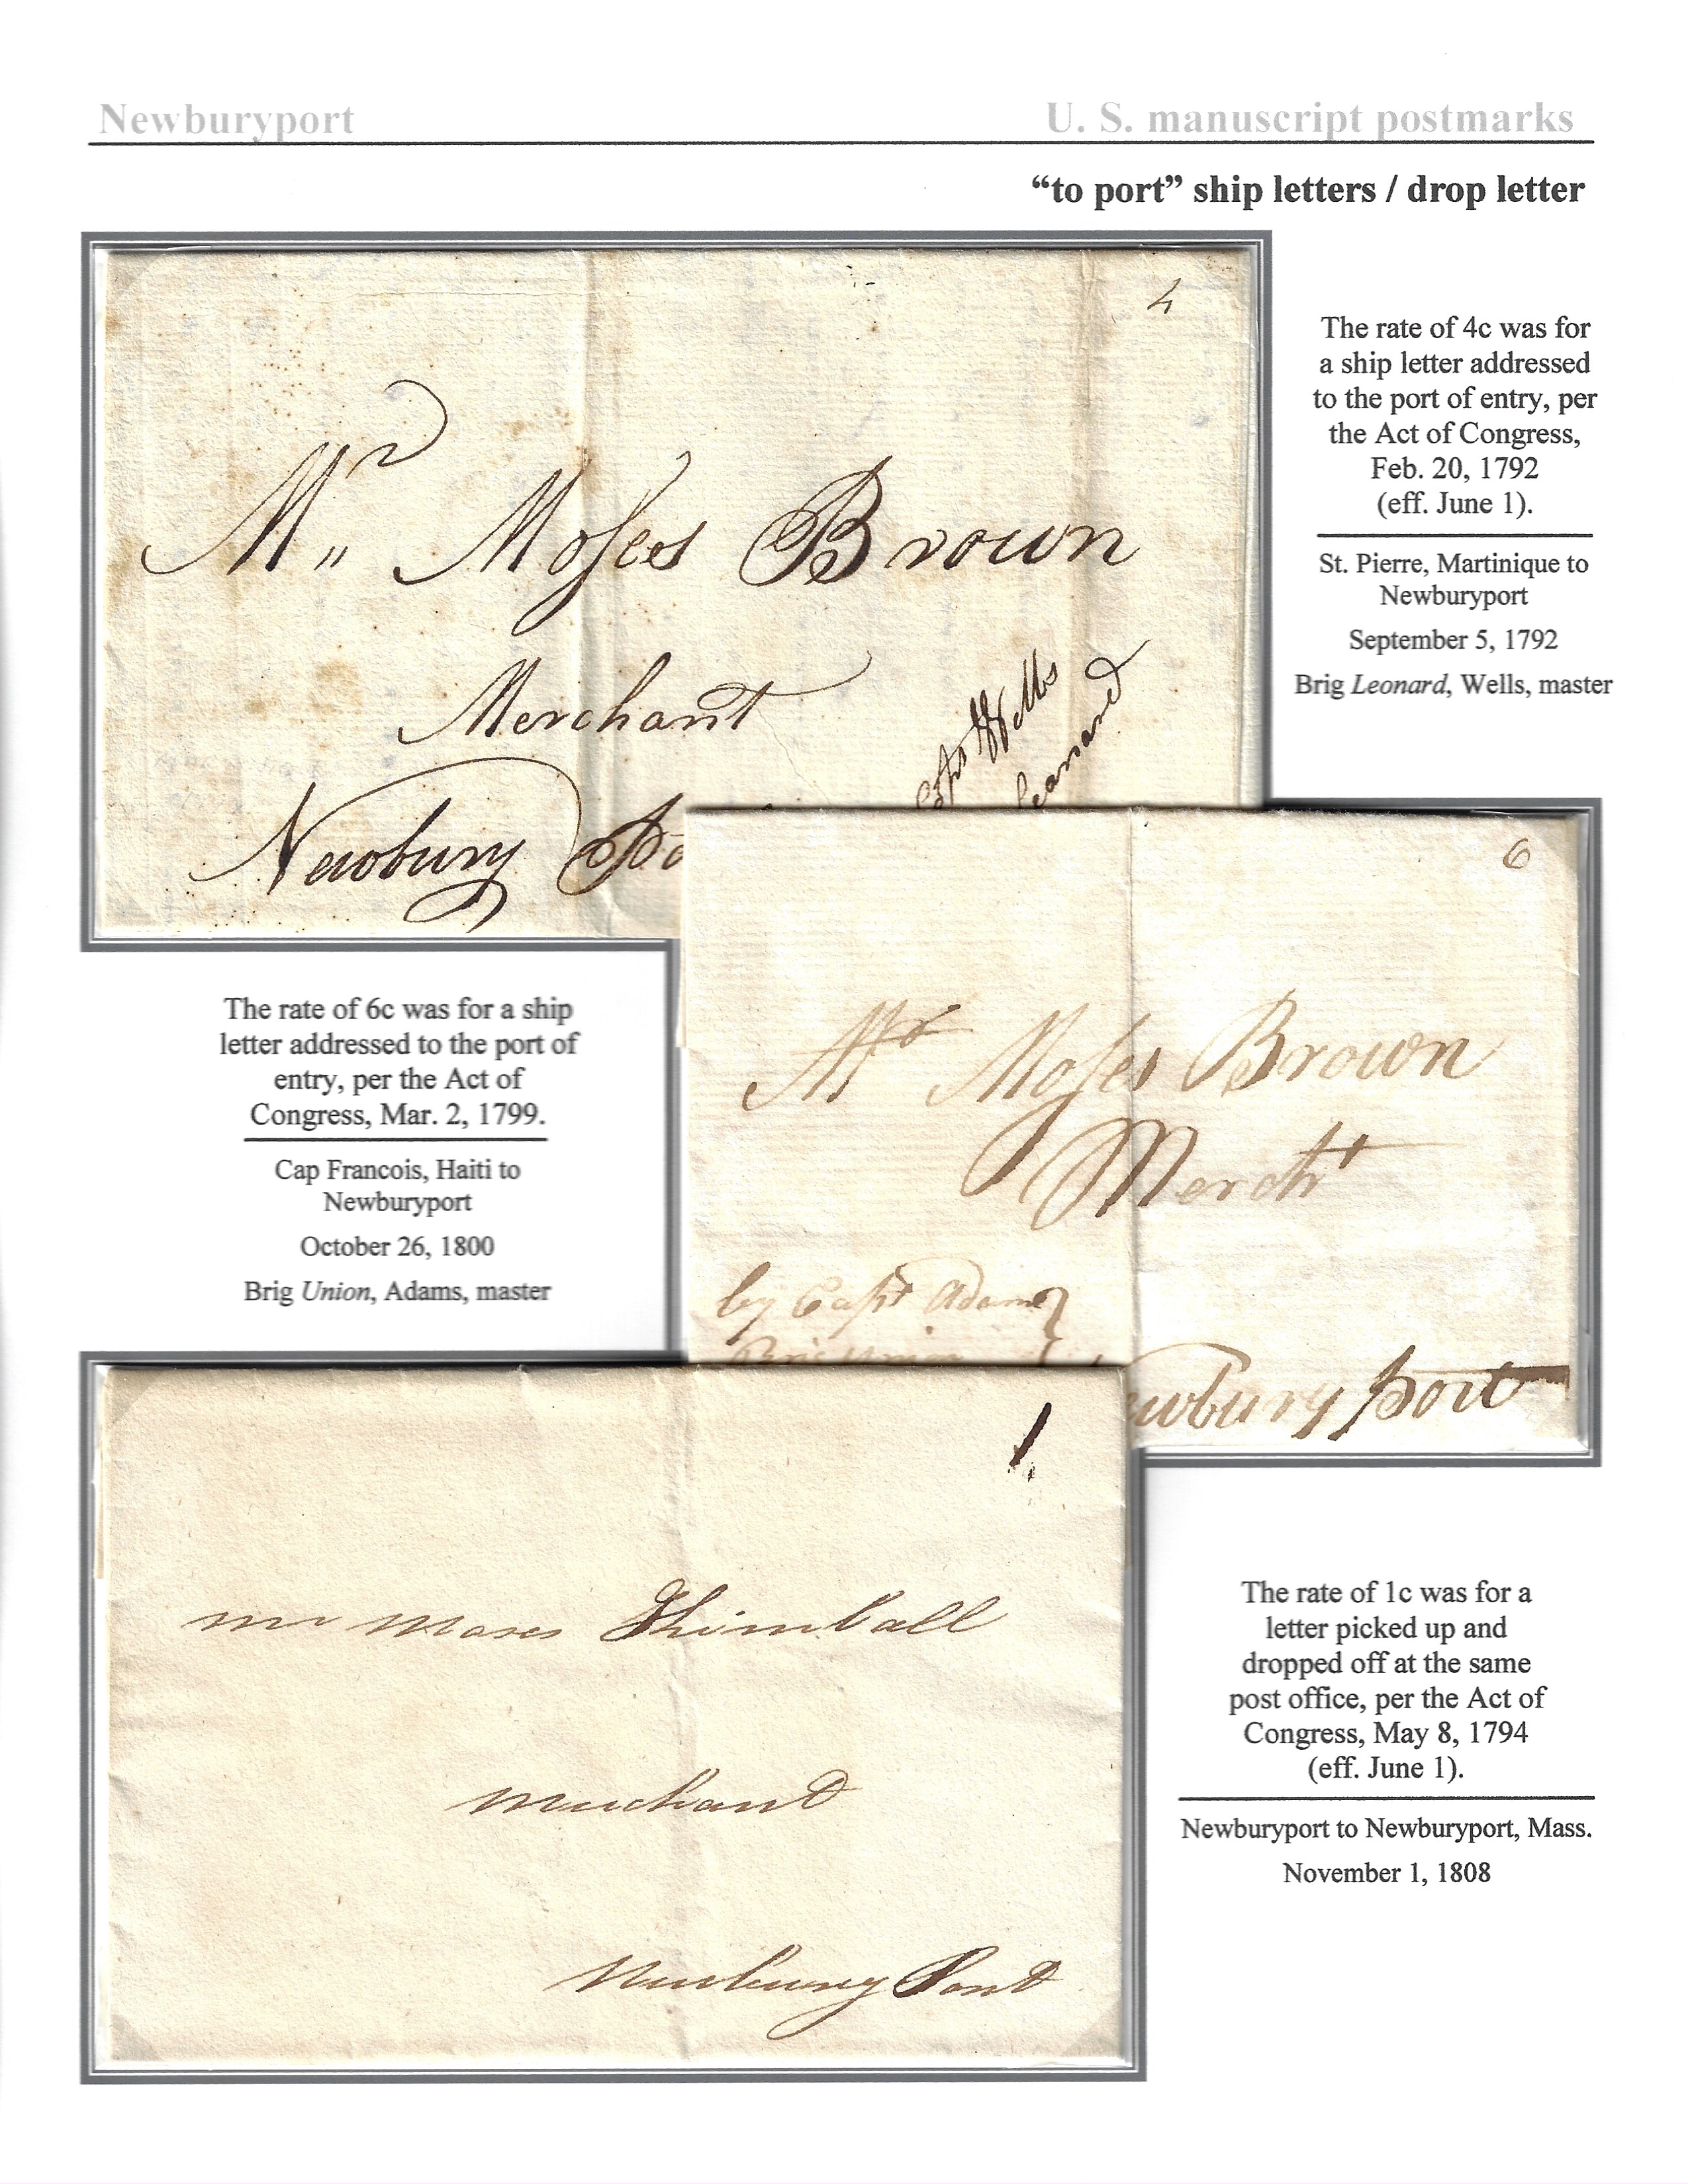 Newburyport
U. S. manuscript postmarks
“to port” ship letters / drop letter
4
Mr Moses Brown
Merchant
Capt Wells
Leanard
Newbury Po
The rate of 4c was for
a ship letter addressed
to the port of entry, per
the Act of Congress,
Feb. 20, 1792
(eff. June 1).
St. Pierre, Martinique to
Newburyport
September 5, 1792
Brig Leonard, Wells, master
6
Mr Moses Brown
Mercht
by Capt Adams
Brig Union
ewbury port
The rate of 6c was for a ship
letter addressed to the port of
entry, per the Act of
Congress, Mar. 2, 1799.
Cap Francois, Haiti to
Newburyport
October 26, 1800
Brig Union, Adams, master
1
Mr Moses Khimball
Merchant
Newbury Port
The rate of 1c was for a
letter picked up and
dropped off at the same
post office, per the Act of
Congress, May 8, 1794
(eff. June 1).
Newburyport to Newburyport, Mass.
November 1, 1808